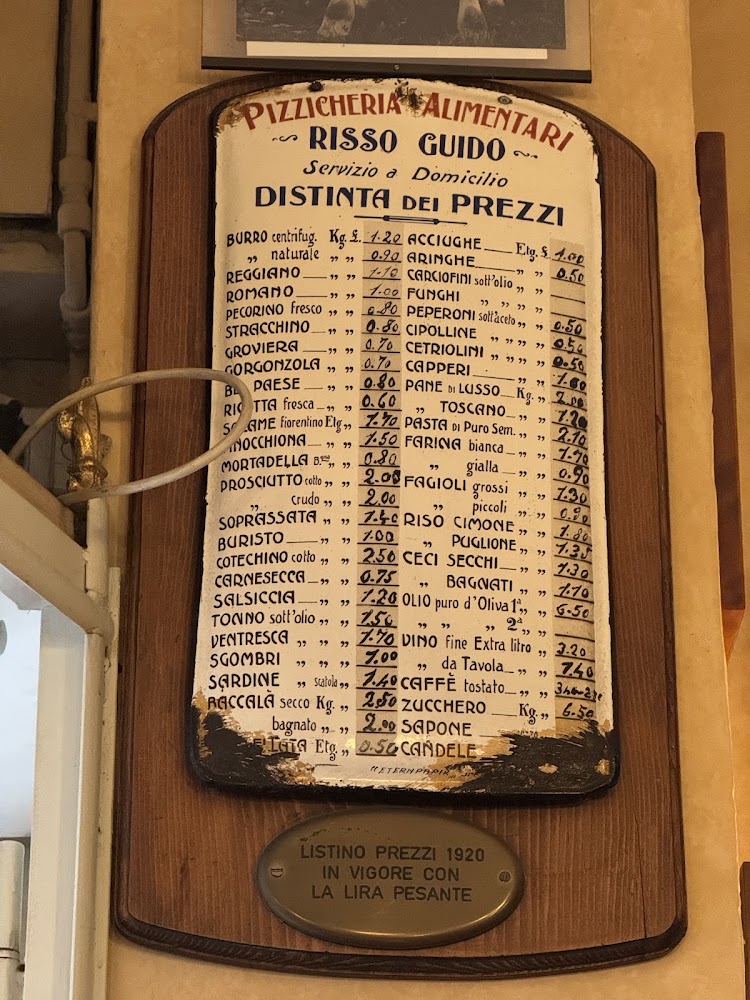 PIZZICHERIA ALIMENTARI
RISSO GUIDO
Servizio a Domicilio
DISTINTA DEI PREZZI
BURRO centrifug. Kg. £. 1.20
„ naturale „ „ 0.90
REGGIANO „ „ 1.10
ROMANO „ „ 1.00
PECORINO fresco „ „ 0.80
STRACCHINO „ „ 0.80
GROVIERA „ „ 0.70
GORGONZOLA „ „ 0.70
PAESE „ „ 0.80
fresca „ „ 0.60
fiorentino Etg „ 1.70
„ „ 1.50
MORTADELLA „ „ 0.80
PROSCIUTTO cotto „ „ 2.00
„ crudo „ „ 2.00
SOPRASSATA „ „ 1.40
BURISTO „ „ 1.00
COTECHINO cotto „ „ 2.50
CARNESECCA „ „ 0.75
SALSICCIA „ „ 1.20
TONNO sott'olio „ „ 1.50
VENTRESCA „ „ „ 1.70
SGOMBRI „ „ „ 1.00
SARDINE „ scatola „ „ 1.40
BACCALÀ secco Kg. „ 2.50
bagnato „ „ 2.00
Etg. „ 0.50
ACCIUGHE Etg. £ 1.00
ARINGHE „ „ 0.50
CARCIOFINI sott'olio „ „
FUNGHI „ „ „ „
PEPERONI sott'aceto „ „ 0.50
CIPOLLINE „ „ „ „ 0.50
CETRIOLINI „ „ „ „ 0.50
CAPPERI „ „ 1.00
PANE DI LUSSO Kg. „ 2.00
„ TOSCANO „ „ 1.20
PASTA di Puro Sem. „ „ 2.10
FARINA bianca „ „ 1.70
„ gialla „ „ 0.90
FAGIOLI grossi „ „ 1.30
„ piccoli „ „ 0.90
RISO CIMONE „ „ 1.80
„ PUGLIONE „ „ 1.35
CECI SECCHI „ „ 1.30
„ BAGNATI „ „ 1.10
OLIO puro d'Oliva 1ª „ „ 6.50
„ „ „ 2ª „ „
VINO fine Extra litro „ 3.20
„ da Tavola „ „ 1.40
CAFFÈ tostato „ „
ZUCCHERO Kg. „ 6.50
SAPONE
CANDELE
LISTINO PREZZI 1920
IN VIGORE CON
LA LIRA PESANTE